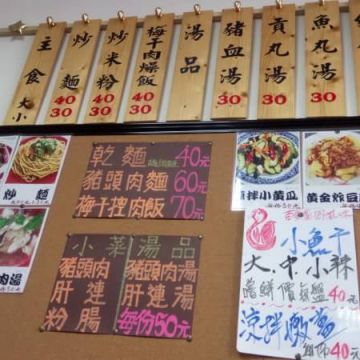 主食 大 小
炒麵 40 30
炒米粉 40 30
梅干肉燥飯 40 30
湯品
豬血湯 30
貢丸湯 30
魚丸湯 30
炒麵
乾麵 40元
豬頭肉麵 60元
梅干控肉飯 70元
小菜湯品
豬頭肉
肝連
粉腸
豬頭肉湯
肝連湯
每份50元
拌小黃瓜
黃金炒豆
肉湯
小魚干
大.中.小辣
嚐鮮價
40元
涼拌
40元